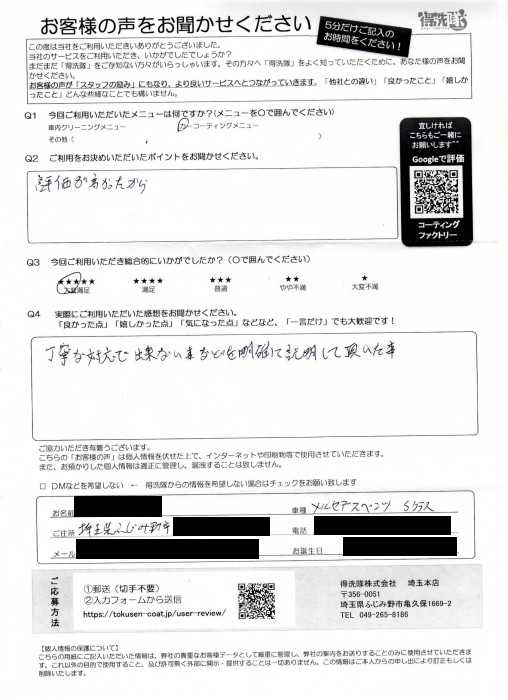 お客様の声をお聞かせください
5分だけご記入の
お時間をください！
得洗隊
この度は当社をご利用いただきありがとうございました。
当社のサービスをご利用いただき、いかがでしたでしょうか？
まだまだ「得洗隊」をご存知ない方々がいらっしゃいます。その方々へ「得洗隊」をよく知っていただくために、あなた様の声をお聞かせください。
お客様の声が「スタッフの励み」にもなり、より良いサービスへとつながっていきます。「他社との違い」「良かったこと」「嬉しかったこと」どんな些細なことでも構いません。
Q1 今回ご利用いただいたメニューは何ですか？(メニューを〇で囲んでください)
車内クリーニングメニュー
カーコーティングメニュー
その他（ ）
Q2 ご利用をお決めいただいたポイントをお聞かせください。
評価が高かったから
宜しければ
こちらもご一緒に
お願いします^^
Googleで評価
コーティング
ファクトリー
Q3 今回ご利用いただき総合的にいかがでしたか？（〇で囲んでください）
★★★★★ ★★★★ ★★★ ★★ ★
大変満足 満足 普通 やや不満 大変不満
Q4 実際にご利用いただいた感想をお聞かせください。
「良かった点」「嬉しかった点」「気になった点」などなど、「一言だけ」でも大歓迎です！
丁寧な対応で出来ない事などを明確に説明して頂いた事
ご協力いただき有難うございます。
こちらの「お客様の声」は個人情報を伏せた上で、インターネットや印刷物等で使用させていただきます。
また、お預かりした個人情報は適正に管理し、漏洩することは致しません。
□ DMなどを希望しない ← 得洗隊からの情報を希望しない場合はチェックをお願い致します
お名前
車種 メルセデスベンツ Sクラス
ご住所 埼玉県ふじみ野市
電話
メール
お誕生日
ご応募方法
①郵送（切手不要）
②入力フォームから送信
https://tokusen-coat.jp/user-review/
得洗隊株式会社 埼玉本店
〒356-0051
埼玉県ふじみ野市亀久保1669-2
TEL 049-265-8186
【個人情報の保護について】
こちらの用紙にご記入いただいた情報は、弊社の貴重なお客様データとして厳重に管理し、弊社の案内をお送りすることのみに使用させていただきます。これ以外の目的で使用すること、及び許可無く外部に開示・提供することは一切ありません。この情報はご本人からの申し出により訂正もしくは削除いたします。